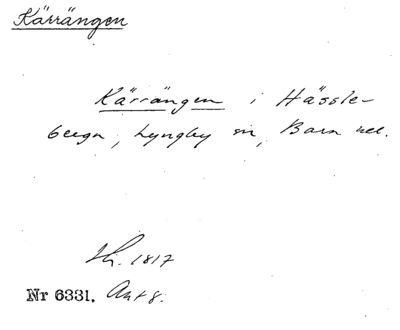 Kärrängen
Kärrängen i Hässle-
berga, Lyngby sn, Bara hd.
1817
Nr 6331. Akt 8.